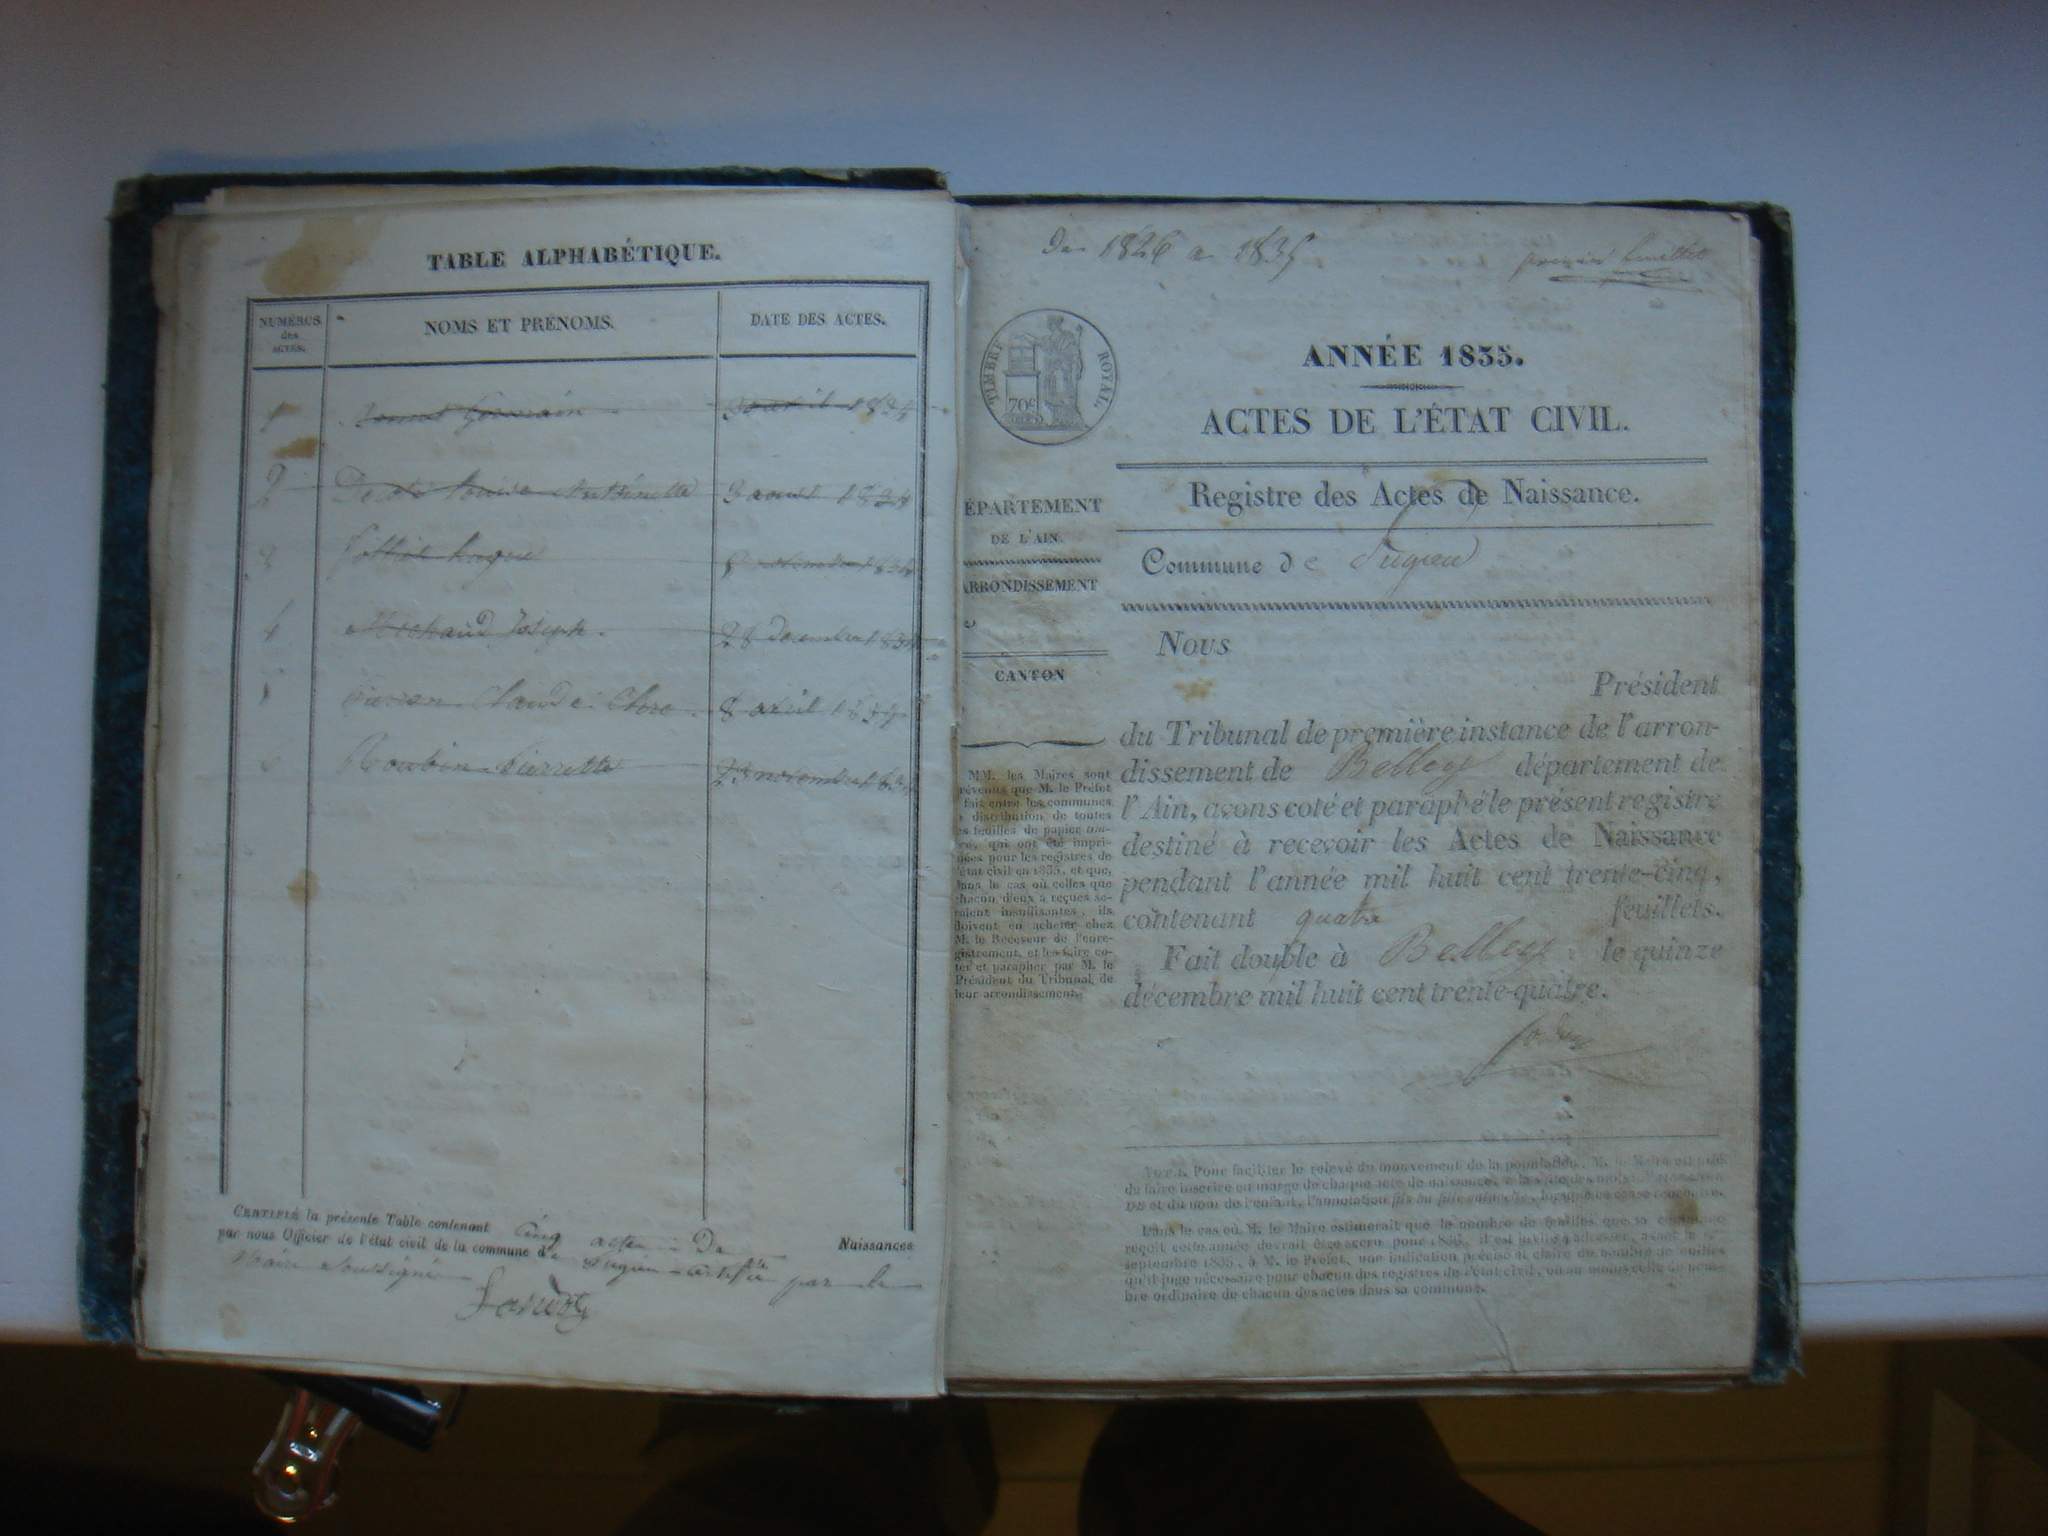 TABLE ALPHABÉTIQUE.
NUMÉROS
des
ACTES.
NOMS ET PRÉNOMS.
DATE DES ACTES.
1 Germain 1834
2 Louise Antoinette 3 aoust 1834
3 1834
4 Michaud Joseph. 28 décembre 1834
5 Claude 8 avril 1834
Roubin Pierrette 23 novembre 1834
CERTIFIÉ la présente Table contenant cinq actes de Naissances
par nous Officier de l'état civil de la commune de Sugieu certifié par le
Maire soussigné
De 1826 a 1835
premier feuillet
TIMBRE ROYAL.
70c
ANNÉE 1835.
ACTES DE L'ÉTAT CIVIL.
Registre des Actes de Naissance.
ÉPARTEMENT
DE L'AIN.
ARRONDISSEMENT
CANTON
Commune de Sugieu
Nous
Président
du Tribunal de première instance de l'arron-
dissement de Belley département de
l'Ain, avons coté et paraphé le présent registre
destiné à recevoir les Actes de Naissance
pendant l'année mil huit cent trente-cinq,
contenant quatre feuillets.
Fait double à Belley, le quinze
décembre mil huit cent trente-quatre.
MM. les Maires sont
révenus que M. le Préfet
fait entre les communes
distribution de toutes
es feuilles de papier tim-
ré, qui ont été impri-
mées pour les registres de
l'état civil en 1835, et que,
dans le cas où celles que
chacun d'eux a reçues se-
raient insuffisantes, ils
doivent en acheter chez
M. le Receveur de l'enre-
gistrement, et les faire co-
ter et parapher par M. le
Président du Tribunal de
leur arrondissement.
NOTA. Pour faciliter le relevé du mouvement de la population, M. le Maire est prié
de faire inscrire en marge de chaque acte de naissance, à la suite des mots
et du nom de l'enfant, l'annotation fils ou fille
Dans le cas où M. le Maire estimerait que le nombre de feuilles que sa commune
reçoit cette année devrait être accru pour 1836, il est invité à adresser, avant le 1er
septembre 1835, à M. le Préfet, une indication précise et claire du nombre de feuilles
qu'il juge nécessaire pour chacun des registres de l'état civil, ou au moins celle du nom-
bre ordinaire de chacun des actes dans sa commune.